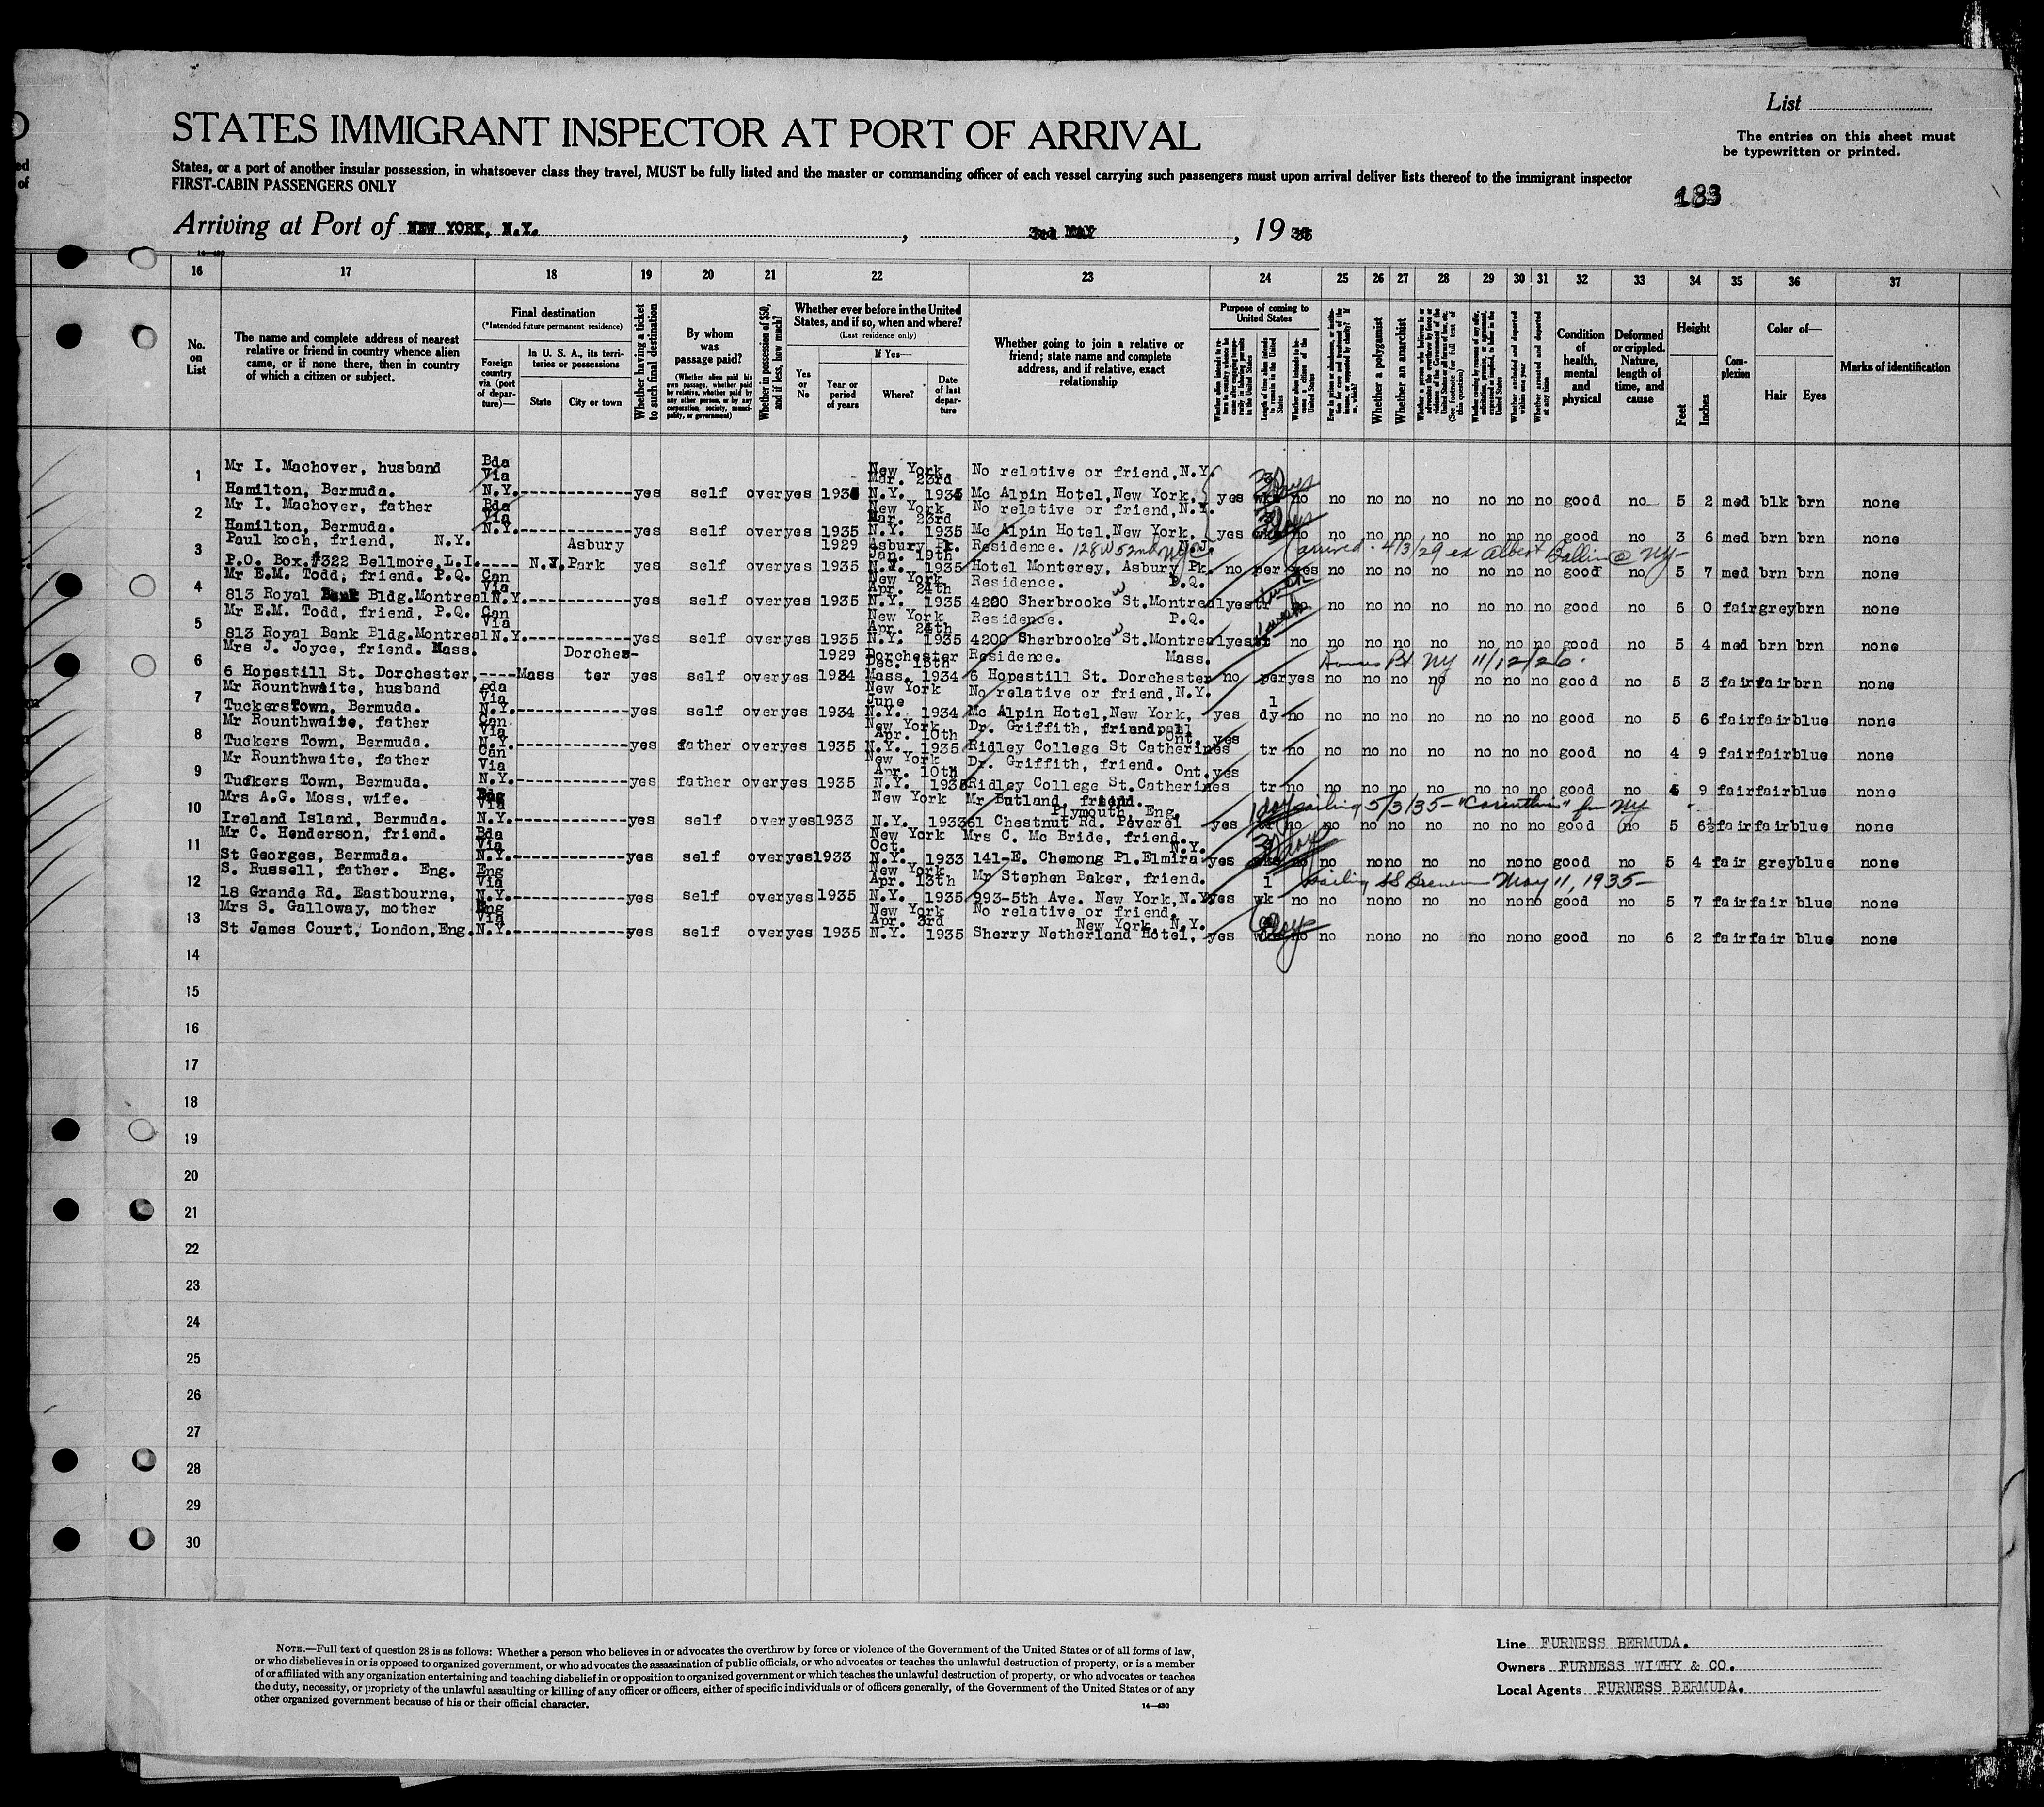 List
STATES IMMIGRANT INSPECTOR AT PORT OF ARRIVAL
The entries on this sheet must
be typewritten or printed.
States, or a port of another insular possession, in whatsoever class they travel, MUST be fully listed and the master or commanding officer of each vessel carrying such passengers must upon arrival deliver lists thereof to the immigrant inspector
FIRST-CABIN PASSENGERS ONLY
183
Arriving at Port of NEW YORK, N.Y. , 3rd MAY , 19 35
16 17 18 19 20 21 22 23 24 25 26 27 28 29 30 31 32 33 34 35 36 37
No. on List
The name and complete address of nearest relative or friend in country whence alien came, or if none there, then in country of which a citizen or subject.
Final destination
(*Intended future permanent residence)
Foreign country via (port of departure)—
In U. S. A., its territories or possessions
State
City or town
Whether having a ticket to such final destination
By whom was passage paid?
(Whether alien paid his own passage, whether paid by relative, whether paid by any other person, or by any corporation, society, municipality, or government)
Whether in possession of $50, and if less, how much?
Whether ever before in the United States, and if so, when and where?
(Last residence only)
Yes or No
If Yes—
Year or period of years
Where?
Date of last departure
Whether going to join a relative or friend; state name and complete address, and if relative, exact relationship
Purpose of coming to United States
Length of time alien intends to remain in the United States
Whether alien intends to become a citizen of the United States
Whether a polygamist
Whether an anarchist
(See footnote for full text of this question)
Whether excluded and deported within one year
Whether arrested and deported at any time
Condition of health, mental and physical
Deformed or crippled. Nature, length of time, and cause
Height
Feet
Inches
Complexion
Color of—
Hair
Eyes
Marks of identification
1 Mr I. Machover, husband Bda Via New York Mar. 23rd No relative or friend,N.Y.
Hamilton, Bermuda. N.Y.------------yes self over yes 1935 N.Y. 1935 Mc Alpin Hotel,New York, yes 3 Days no no no no no no no no good no 5 2 med blk brn none
2 Mr I. Machover, father Bda Via New York Mar. 23rd No relative or friend,N.Y.
Hamilton, Bermuda. N.Y.------------yes self over yes 1935 N.Y. 1935 Mc Alpin Hotel,New York, yes 3 Days no no no no no no no no good no 3 6 med brn brn none
3 Paul koch, friend, N.Y. Asbury 1929 Asbury Pk. Jan. 19th Residence. 128 W 52nd NYC N.J. arrived 4/3/29 ex Albert Ballin @ NY-
P.O. Box.#322 Bellmore,L.I.---- N.J. Park yes self over yes 1935 N.J. 1935 Hotel Monterey, Asbury Pk. no per yes no no no no no no no good no 5 7 med brn brn none
4 Mr E.M. Todd, friend. P.Q. Can Via New York Apr. 24th Residence. P.Q.
813 Royal Bank Bldg.Montreal N.Y.------------yes self over yes 1935 N.Y. 1935 4200 Sherbrooke W St.Montreal yes tr no no no no no no no no good no 6 0 fair grey brn none
5 Mr E.M. Todd, friend, P.Q. Can Via New York Apr. 24th Residence. P.Q. 1 week
813 Royal Bank Bldg.Montreal N.Y.------------yes self over yes 1935 N.Y. 1935 4200 Sherbrooke W St.Montreal yes tr no no no no no no no no good no 5 4 med brn brn none
6 Mrs J. Joyce, friend. Mass. Dorches- 1929 Dorchester Dec. 15th Residence. Mass. NY 11/12/26.
6 Hopestill St. Dorchester,----Mass ter yes self over yes 1934 Mass. 1934 6 Hopestill St. Dorchester no per yes no no no no no no no good no 5 3 fair fair brn none
7 Mr Rounthwaite, husband Bda Via New York June No relative or friend,N.Y. 1
Tuckerstown, Bermuda. N.Y.------------yes self over yes 1934 N.Y. 1934 Mc Alpin Hotel,New York, yes dy no no no no no no no no good no 5 6 fair fair blue none
8 Mr Rounthwaite, father Can Via New York Apr. 10th Dr. Griffith, friend Ont. yes
Tuckers Town, Bermuda. N.Y.------------yes father over yes 1935 N.Y. 1935 Ridley College St Catherines tr no no no no no no no no good no 4 9 fair fair blue none
9 Mr Rounthwaite, father Can Via New York Apr. 10th Dr. Griffith, friend. Ont. yes
Tuckers Town, Bermuda. N.Y.------------yes father over yes 1935 N.Y. 1935 Ridley College St.Catherines tr no no no no no no no no good no 4 9 fair fair blue none
10 Mrs A.G. Moss, wife. Via New York Mr Butland, friend. Plymouth, Eng. 1 day sailing 5/3/35- "Carinthia" fr NY
Ireland Island, Bermuda. N.Y.------------yes self over yes 1933 N.Y. 1933 61 Chestnut Rd. Peverel yes tr no no no no no no no no good no 5 6½ fair fair blue none
11 Mr C. Henderson, friend. Bda Via New York Oct. Mrs C. Mc Bride, friend. N.Y. 3 Days
St Georges, Bermuda. N.Y.------------yes self over yes 1933 N.Y. 1933 141-E. Chemong Pl.Elmira yes no no no no no no no no good no 5 4 fair grey blue none
12 S. Russell, father. Eng. Eng Via New York Apr. 13th Mr Stephen Baker, friend. 1 Sailing SS Bremen May 11, 1935-
18 Grande Rd. Eastbourne, N.Y.------------yes self over yes 1935 N.Y. 1935 993-5th Ave. New York,N.Y. yes wk no no no no no no no no good no 5 7 fair fair blue none
13 Mrs S. Galloway, mother Eng Via New York Apr. 3rd No relative or friend. New York, N.Y.
St James Court, London,Eng. N.Y.------------yes self over yes 1935 N.Y. 1935 Sherry Netherland Hotel, yes no no no no no no no no good no 6 2 fair fair blue none
14
15
16
17
18
19
20
21
22
23
24
25
26
27
28
29
30
NOTE.—Full text of question 28 is as follows: Whether a person who believes in or advocates the overthrow by force or violence of the Government of the United States or of all forms of law,
or who disbelieves in or is opposed to organized government, or who advocates the assassination of public officials, or who advocates or teaches the unlawful destruction of property, or is a member
of or affiliated with any organization entertaining and teaching disbelief in or opposition to organized government or which teaches the unlawful destruction of property, or who advocates or teaches
the duty, necessity, or propriety of the unlawful assaulting or killing of any officer or officers, either of specific individuals or of officers generally, of the Government of the United States or of any
other organized government because of his or their official character.
14—430
Line FURNESS BERMUDA.
Owners FURNESS WITHY & CO.
Local Agents FURNESS BERMUDA.